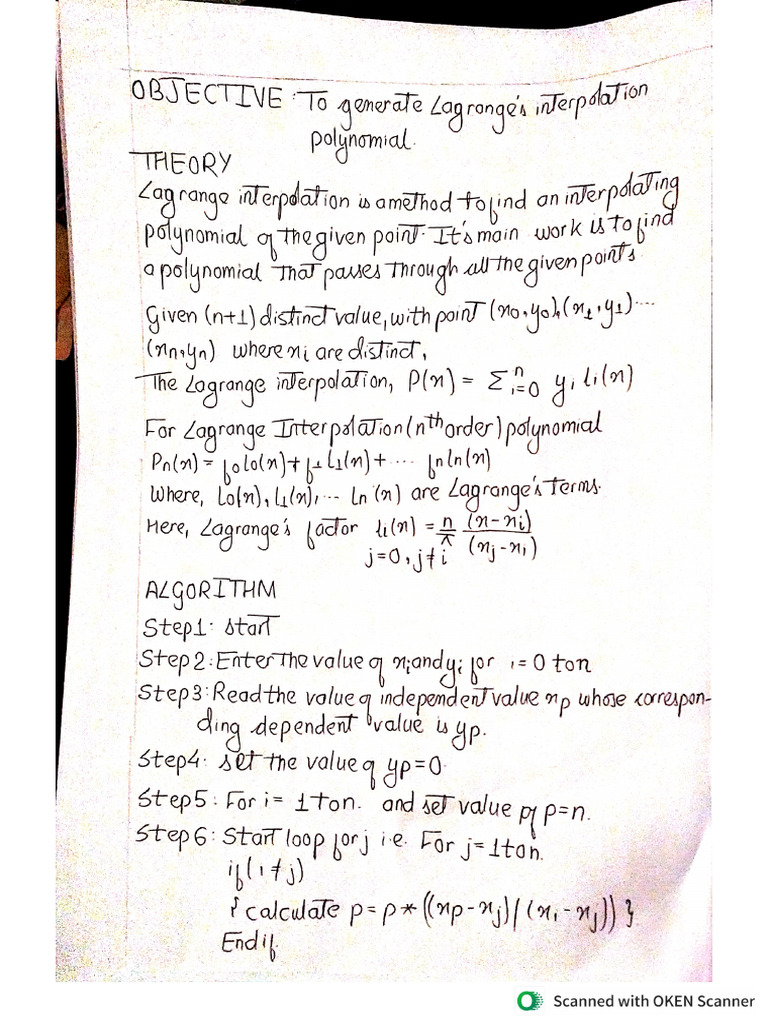 OBJECTIVE: To generate Lagrange's interpolation
polynomial.
THEORY
Lagrange interpolation is a method to find an interpolating
polynomial of the given point. It's main work is to find
a polynomial that passes through all the given points.
Given (n+1) distinct value, with point (x0, y0), (x1, y1) ...
(xn, yn) where xi are distinct,
The Lagrange interpolation, P(x) = Σ n i=0 yi li(x)
For Lagrange Interpolation (nth order) polynomial
Pn(x) = f0 l0(x) + f1 l1(x) + ... fn ln(x)
Where, L0(x), L1(x), ... Ln (x) are Lagrange's Terms.
Here, Lagrange's factor li(x) = n π (x-xi)/(xj-xi)
j=0, j≠i
ALGORITHM
Step1: start
Step2: Enter the value of xi and yi for i=0 to n
Step3: Read the value of independent value xp whose correspon-
ding dependent value is yp.
Step4: set the value of yp=0.
Step5: For i= 1 to n. and set value of p=n.
Step6: Start loop for j i.e. For j=1 to n.
if (i≠j)
{ calculate p = p * ((xp-xj) / (xi-xj)) }
End if.
Scanned with OKEN Scanner